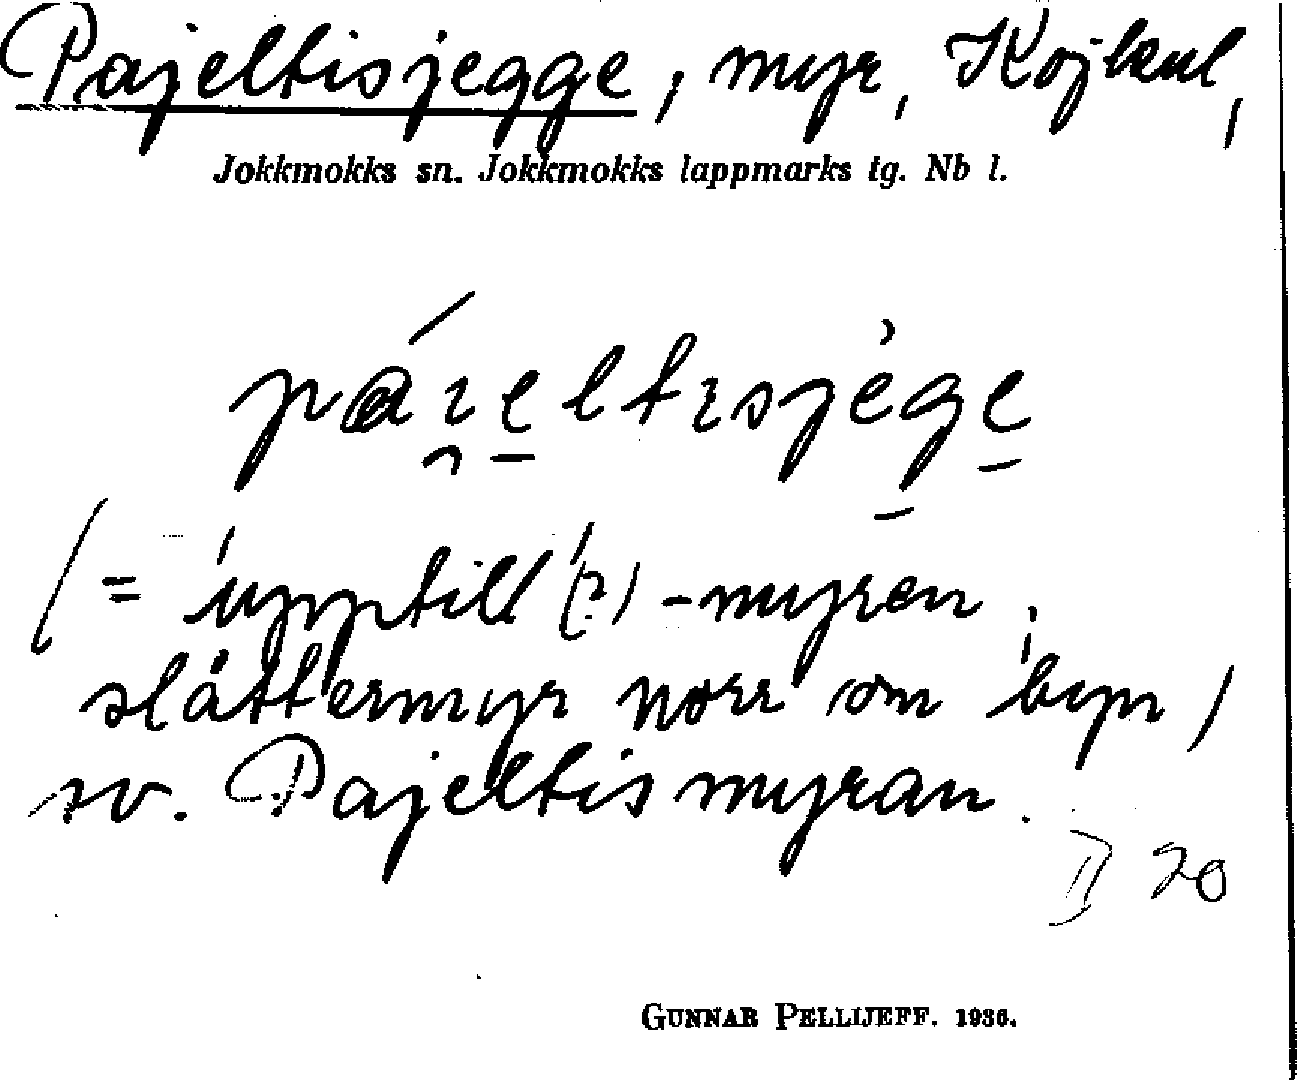 Pajeltisjegge, myr, Kojkul,
Jokkmokks sn. Jokkmokks lappmarks tg. Nb l.
(= upptill (?) -myren,
slåttermyr norr om byn)
sv. Pajeltismyran.
II 20
GUNNAR PELLIJEFF. 1936.